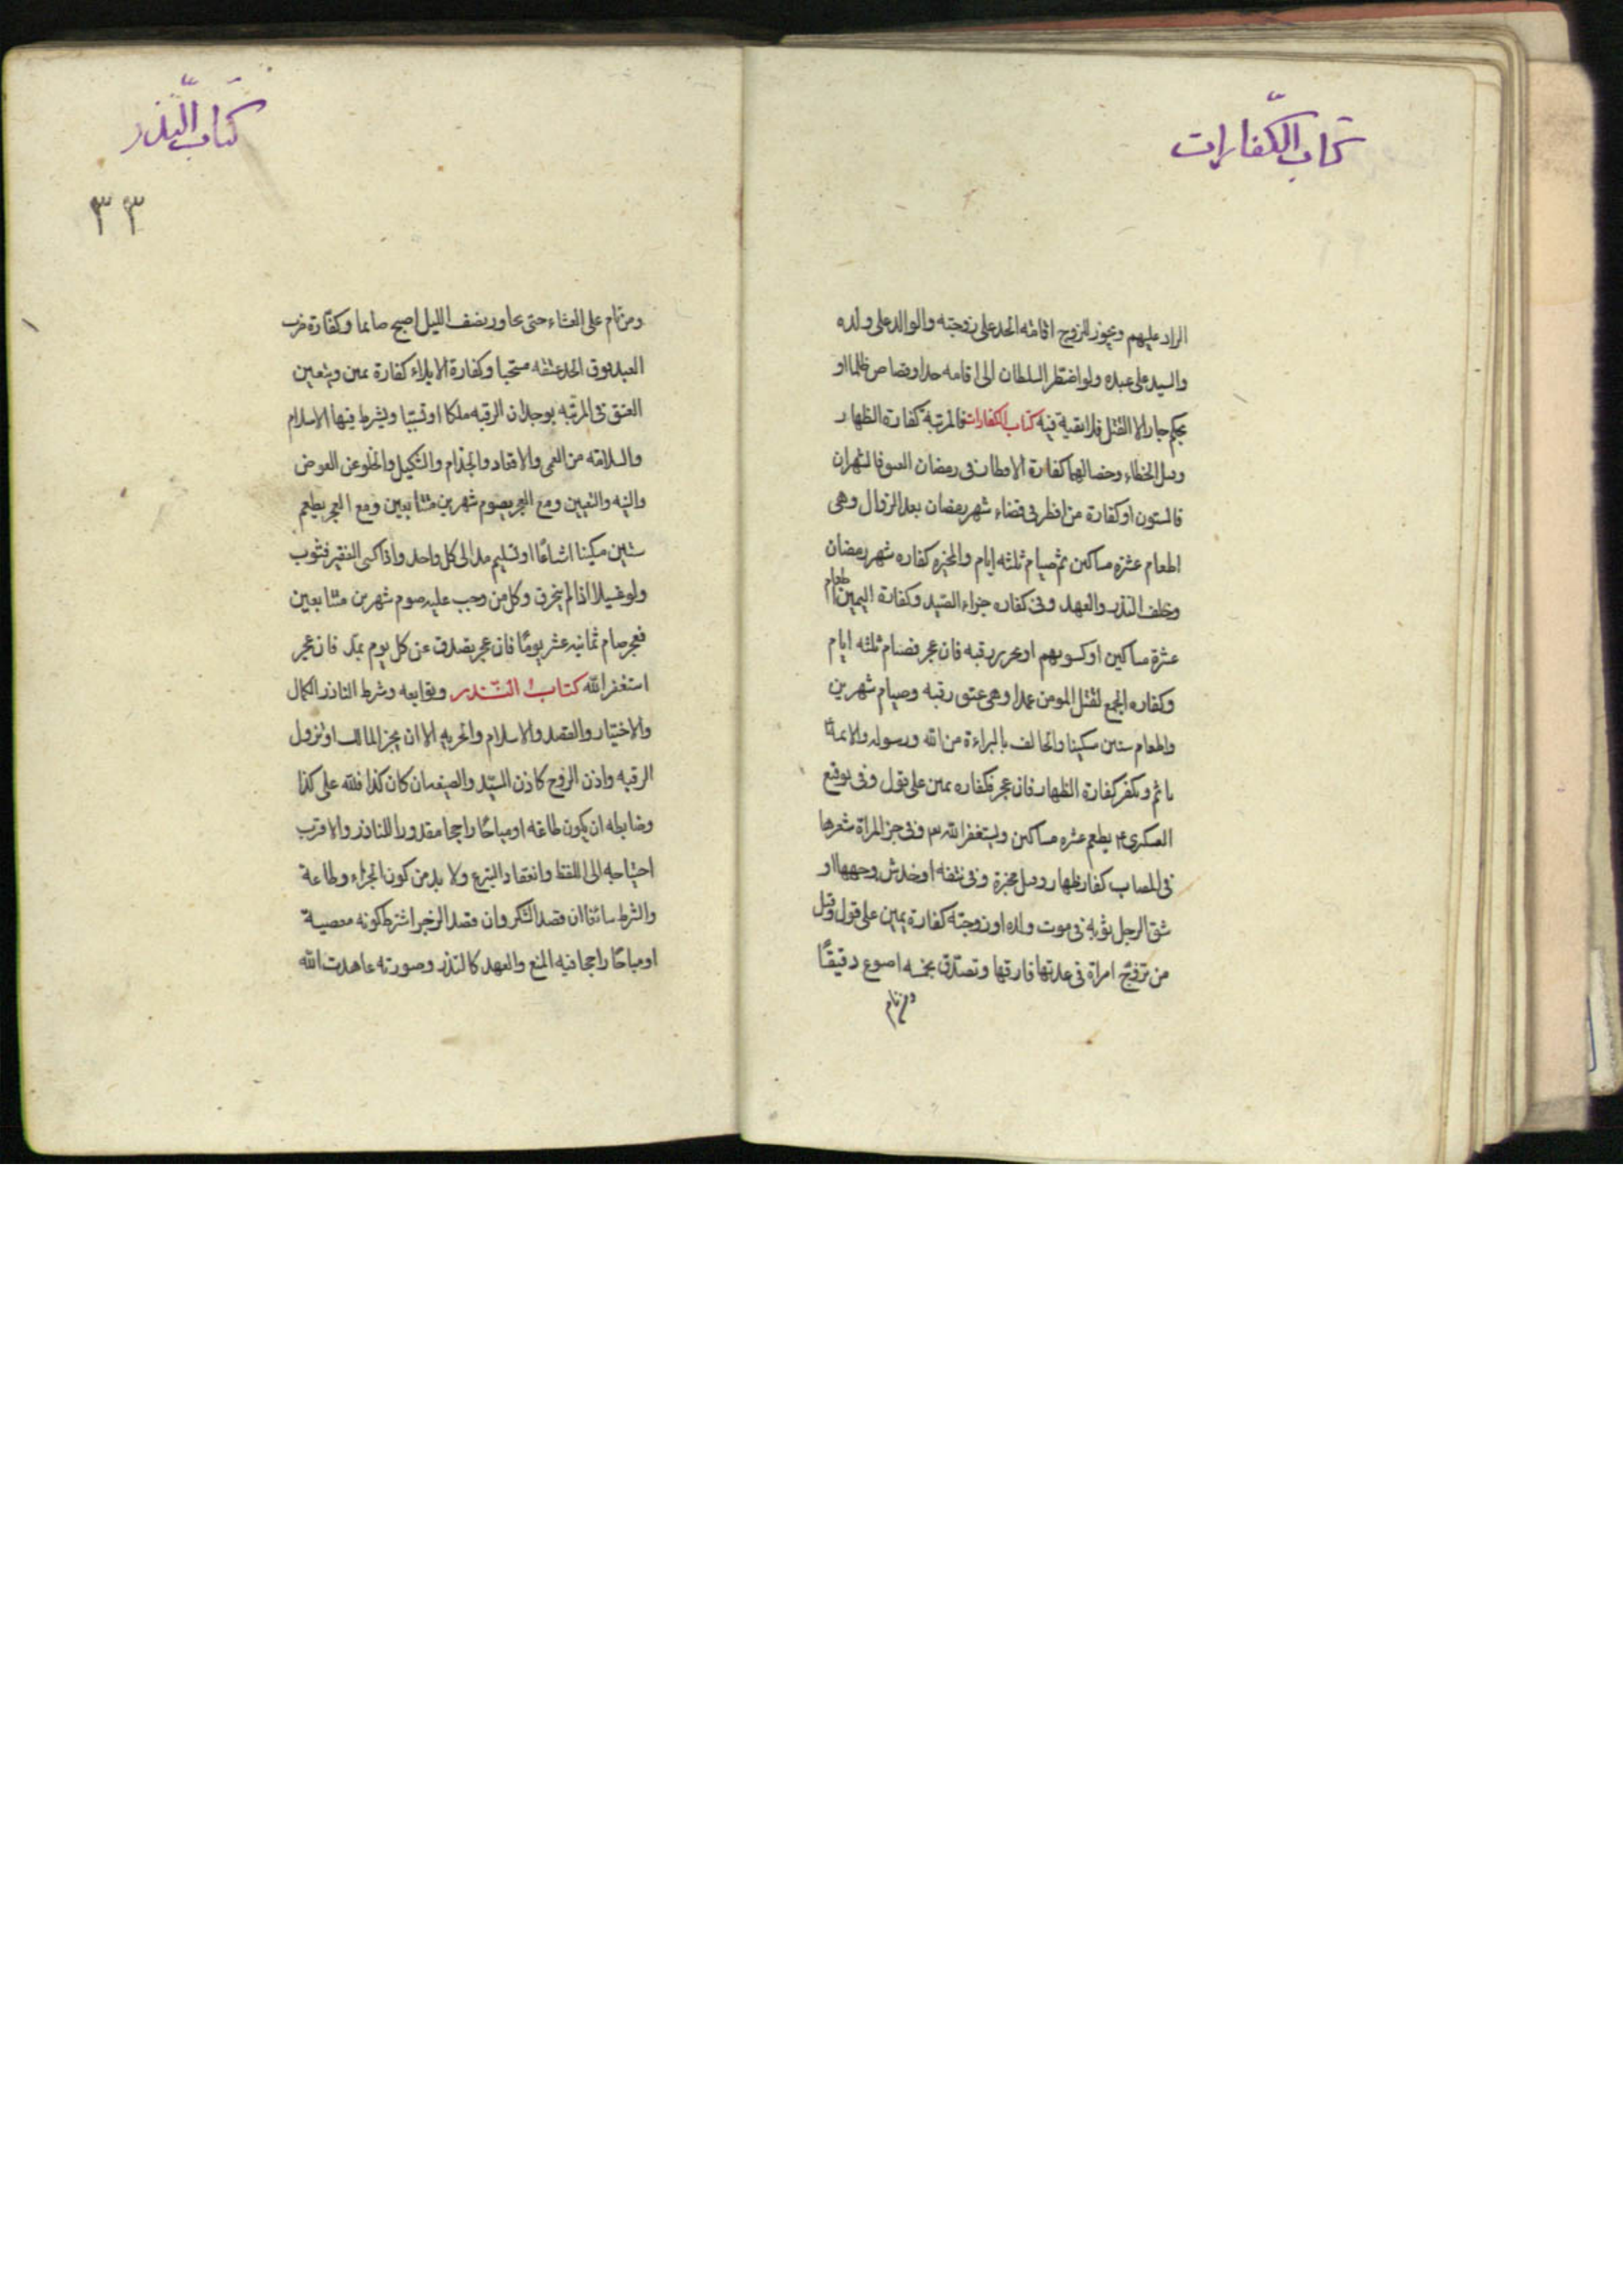 كتاب الكفارات
الراد عليهم ويجوز للزوج اقامة الحد على زوجته والوالد على ولده
والسيد على عبده ولو اضطر السلطان الى اقامه حد او قصاص ظلما او
بحكم جار الا القتل فلا تقية فيه كتاب الكفارات فالمرتبة كفارة الظهار
وقتل الخطاء وخصالهما كفارة الافطار فى رمضان العتق فالشهران
فالستون او كفارة من افطر فى قضاء شهر رمضان بعد الزوال وهى
اطعام عشرة مساكين ثم صيام ثلثه ايام والمخيره كفاره شهر رمضان
وخلف النذر والعهد وفى كفاره جزاء الصيد وكفارة اليمين اطعام
عشرة مساكين او كسوتهم او تحرير رقبه فان عجز فصام ثلثه ايام
وكفاره الجمع لقتل المومن عمدا وهى عتق رقبه وصيام شهرين
واطعام ستين مسكينا والحالف بالبراءة من الله ورسوله والائمة
ياثم ويكفر كفارة الظهار فان عجز فكفاره يمين على قول وفى توقيع
العسكرى ع يطعم عشره مساكين ويستغفر الله وفى جز المراة شعرها
فى المصاب كفار ظهار وقيل مخيرة وفى نتفه او خدش وجهها او
شق الرجل ثوبه فى موت ولده او زوجته كفارة يمين على قول وقيل
من تزوج امراة فى عدتها فارقها وتصدق بخمسه اصوع دقيقا
ومن نام
كتاب النذر
٣٣
ومن نام على العشاء حتى تجاوز نصف الليل اصبح صايما وكفارة ضرب
العبد فوق الحد عتقه مستحبا وكفارة الايلاء كفارة يمين ويتعين
العتق فى المرتبه بوجدان الرقبه ملكا او تسبيبا ويشرط فيها الاسلام
والسلامه من العمى والاقعاد والجذام والتنكيل والخلو عن العوض
والنيه والتعيين ومع العجز يصوم شهرين متتابعين ومع العجز يطعم
ستين مسكينا اشباعا او تسليم مد الى كل واحد واذا كسى الفقير فثوب
ولو غسيلا اذا لم ينخرق وكل من وجب عليه صوم شهرين متتابعين
فعجز صام ثمانيه عشر يوما فان عجز تصدق عن كل يوم بمد فان عجز
استغفر الله كتاب النذر وتوابعه وشرط الناذر الكمال
والاختيار والقصد والاسلام والحريه الا ان يجيز المالك او تزول
الرقيه واذن الزوج كاذن السيد والصيغه ان كان كذا فلله على كذا
وضابطه ان يكون طاعه او مباحا راجحا مقدورا للناذر والاقرب
احتياجه الى اللفظ وانعقاد التبرع ولا بد من كون الجزاء طاعة
والشرط سائغا ان قصد الشكر وان قصد الزجر اشترط كونه معصية
او مباحا راجحا فيه المنع والعهد كالنذر وصورته عاهدت الله